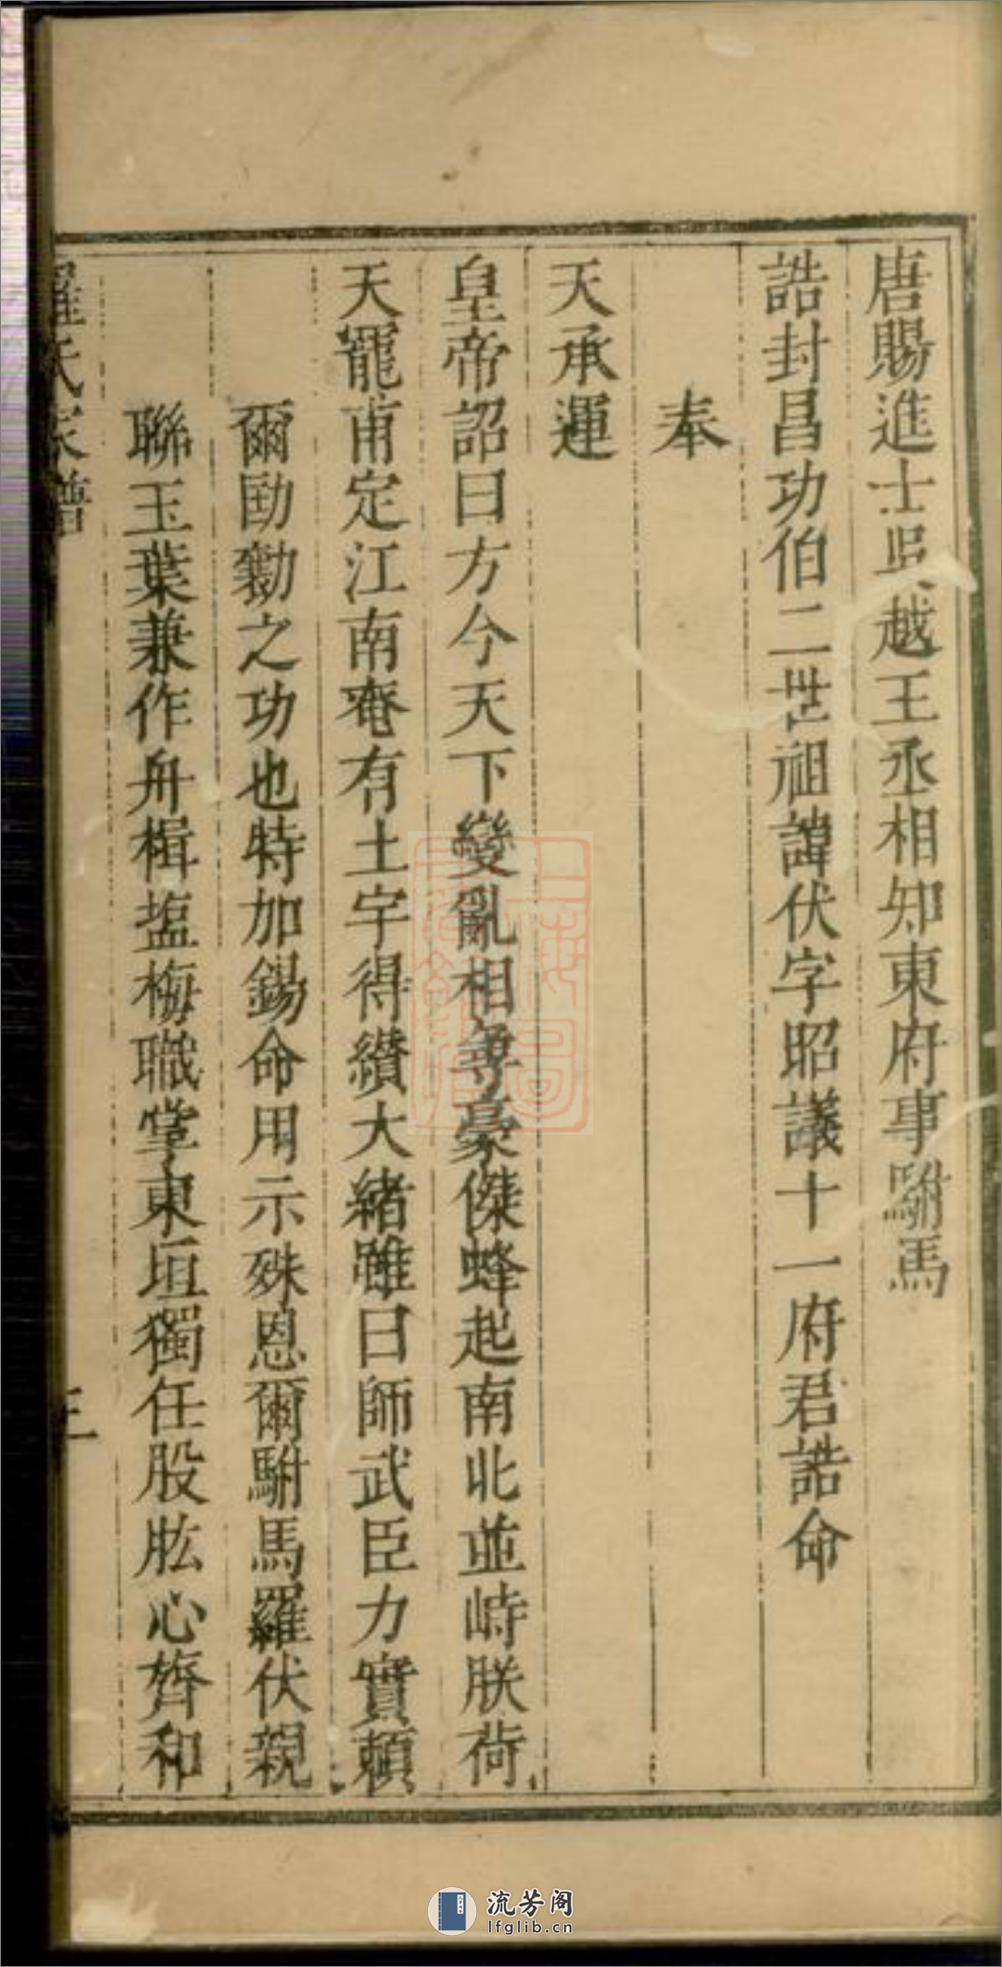 唐賜進士吳越王丞相知東府事駙馬
誥封昌功伯二世祖諱伏字昭議十一府君誥命
奉
天承運
皇帝詔曰方今天下變亂相尋豪傑蜂起南北並峙朕荷
天寵甫定江南奄有土宇得纘大緒雖曰師武臣力實頼
爾劻勷之功也特加錫命用示殊恩爾駙馬羅伏親
聯玉葉兼作舟楫塩梅職掌東垣獨任股肱心齊和
羅氏家譜
流芳阁
lfglib.cn